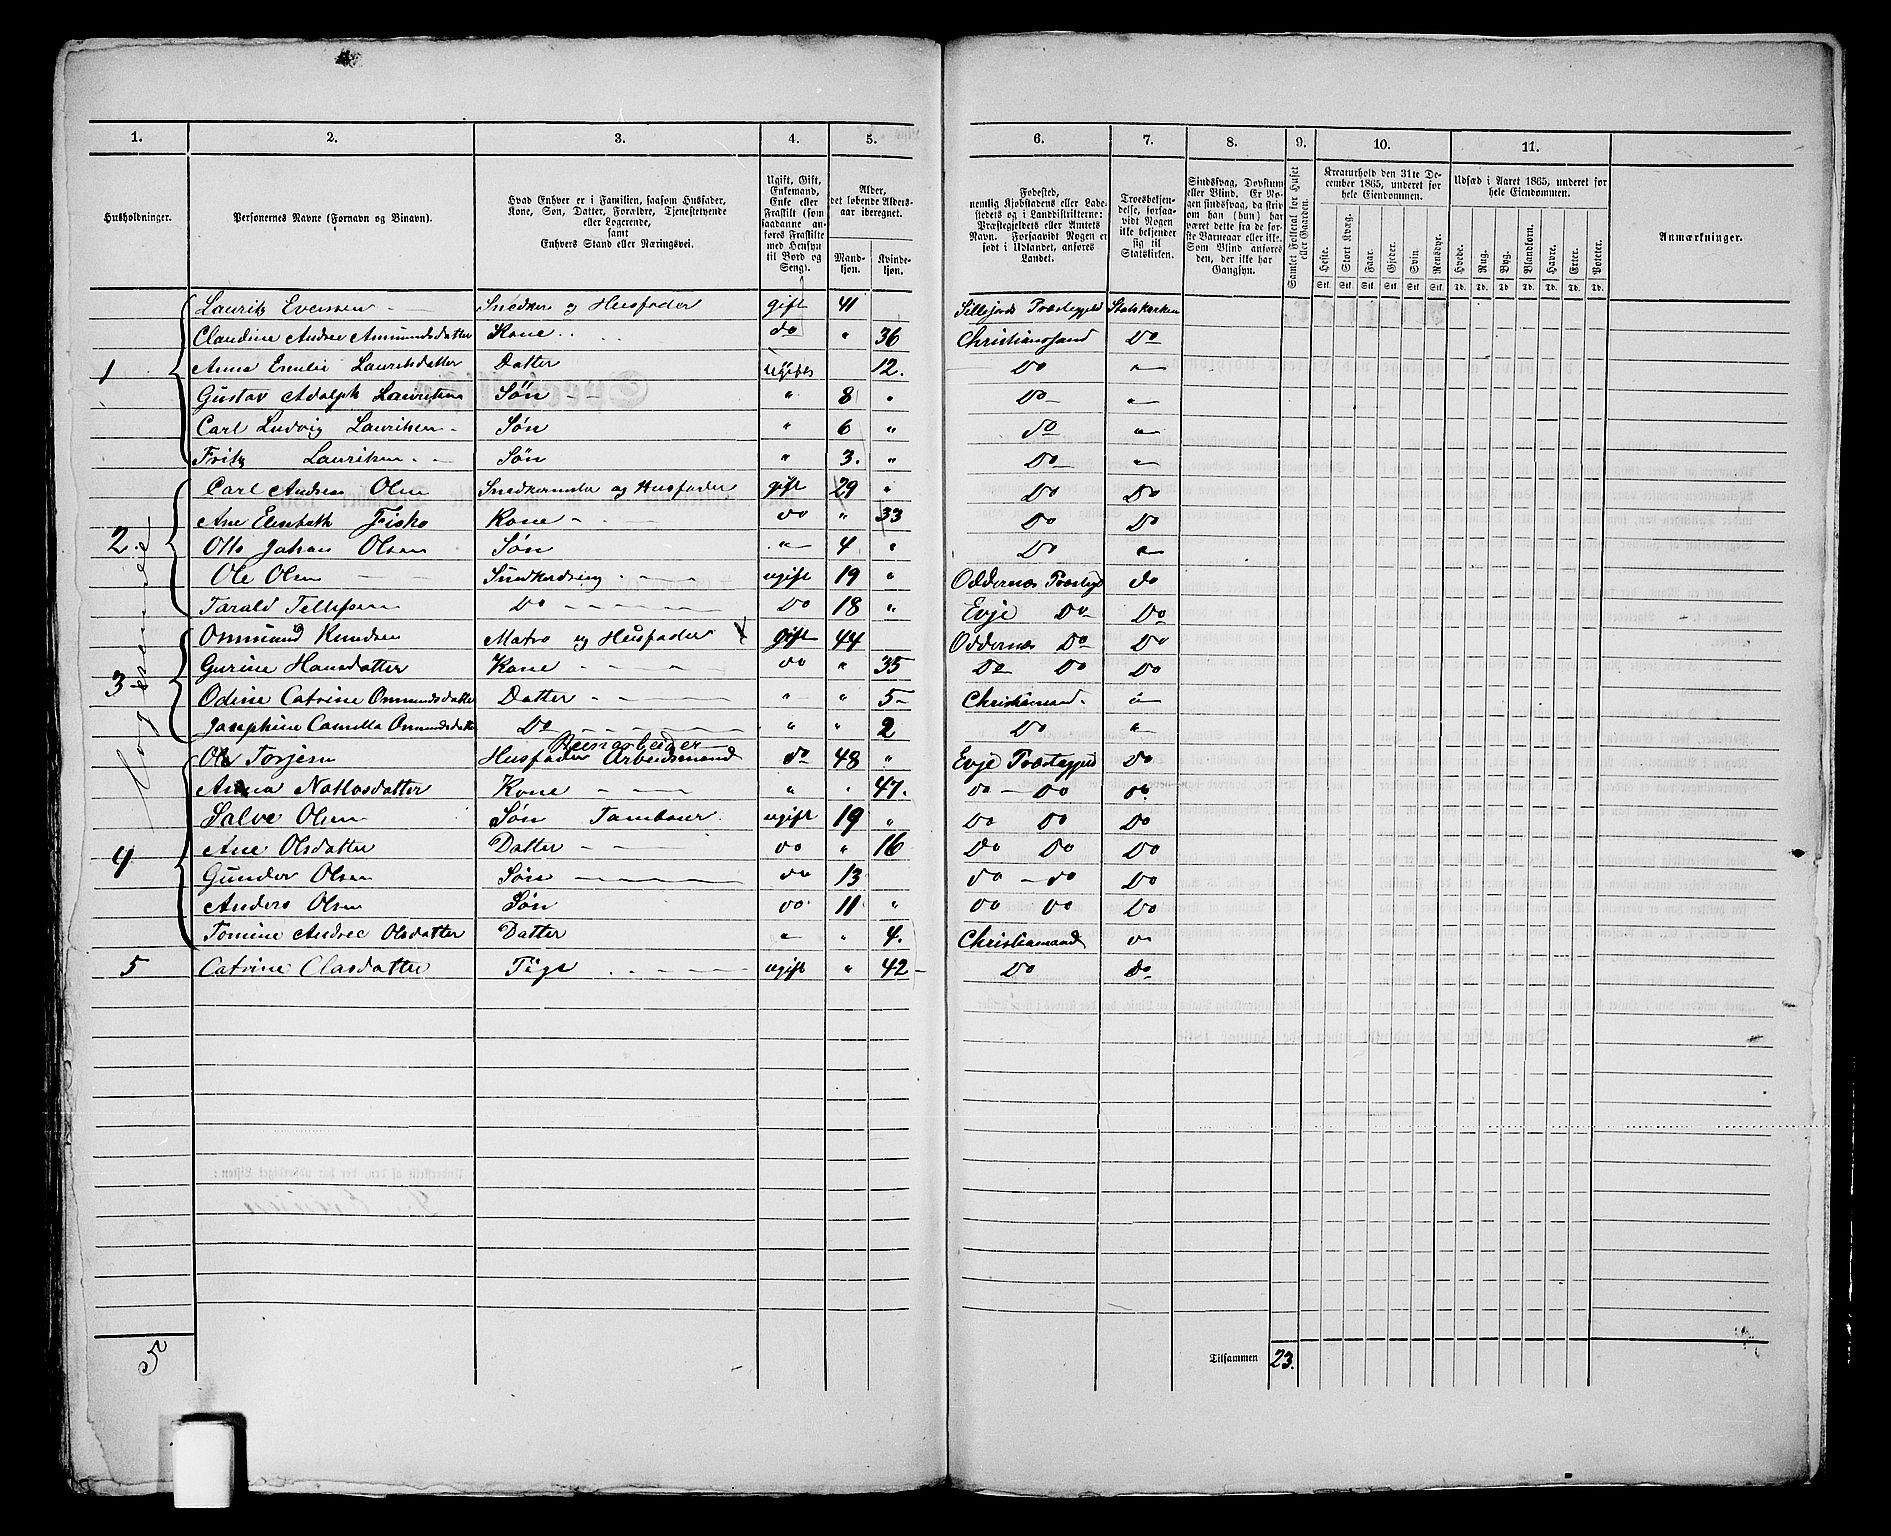 1. 2. 3. 4. 5. 6. 7. 8. 9. 10. 11.
Husholdninger.
Personernes Navne (Fornavn og Binavn).
Hvad Enhver er i Familien, saasom Husfader, Kone, Søn, Datter, Forældre, Tjenestetyende eller Logerende, samt Enhvers Stand eller Næringsvei.
Ugift, Gift, Enkemand, Enke eller Fraskilt (som saadanne anføres Fraskilte med Hensyn til Bord og Seng).
Alder, det løbende Aldersaar iberegnet.
Mandkjøn. Kvindekjøn.
Fødested, nemlig Kjøbstadens eller Ladestedets og i Landdistrikterne: Præstegjeldets eller Amtets Navn. Forsaavidt Nogen er født i Udlandet, anføres Landet.
Troesbekjendelse, forsaavidt Nogen ikke bekjender sig til Statskirken.
Sindssvag, Døvstum eller Blind. Er Nogen sindssvag, da skrives om han (hun) har været dette fra de første Barneaar eller ikke. Som Blind anføres den, der ikke har Gangsyn.
Samlet Folketal for Huset eller Gaarden.
Kreaturhold den 31te December 1865, underet for hele Eiendommen.
Heste. Stort Kvæg. Faar. Gjeder. Svin. Rensdyr.
Stk. Stk. Stk. Stk. Stk. Stk.
Udsæd i Aaret 1865, underet for hele Eiendommen.
Hvede. Rug. Byg. Blandkorn. Havre. Erter. Poteter.
Td. Td. Td. Td. Td. Td. Td.
Anmærkninger.
1 Lauritz Evensen Snedker og Husfader gift 41 Sillejords Præstegjeld Statskirken
Claudine Andrea Amundsdatter Kone do " 36 Christianssand Do
Anna Emilie Lauritsdatter Datter ugivt 12. Do "
Gustav Adolph Lauritsen Søn " 8 " Do "
Carl Ludvig Lauritsen Søn " 6 " do "
Fritz Lauritsen Søn " 3. " Do "
2 Carl Andreas Olsen Snedkermester og Husfader gift 29 " Do Do
Ane Elisabeth Fisko Kone Do " 33 Do Do
Otto Johan Olsen Søn " 4 " Do "
Ole Olsen Snedkerdreng ugift 19 " Oddernæs Præstegj do
Tarald Tellefsen Do Do 18 " Evje Do Do
3 Ommund Knudsen Matros og Husfader gift 44 Oddernæs Do Do
Gurine Hansdatter Kone Do " 35 Do Do Do
Odine Catrine Ommundsdatter Datter " " 5 Christiansand "
Josephine Camilla Ommundsdatter Do " " 2 Do "
4 Ole Torjesen Husfader Arbeidsmand do 48 " Evje Præstegjeld Do
Anna Kone " " 47. Do Do Do
Salve Olsen Søn Tambour ugift 19 " Do Do Do
Ane Olsdatter Datter Do " 16 Do Do Do
Gunder Olsen Søn do 13 Do do Do
Anders Olsen Søn Do 11 " Do Do Do
Tomine Andrea Olsdatter Datter " " 4. Christiansand "
5 Catrine Olasdatter Pige ugift " 42 Do do
5
Tilsammen 23.